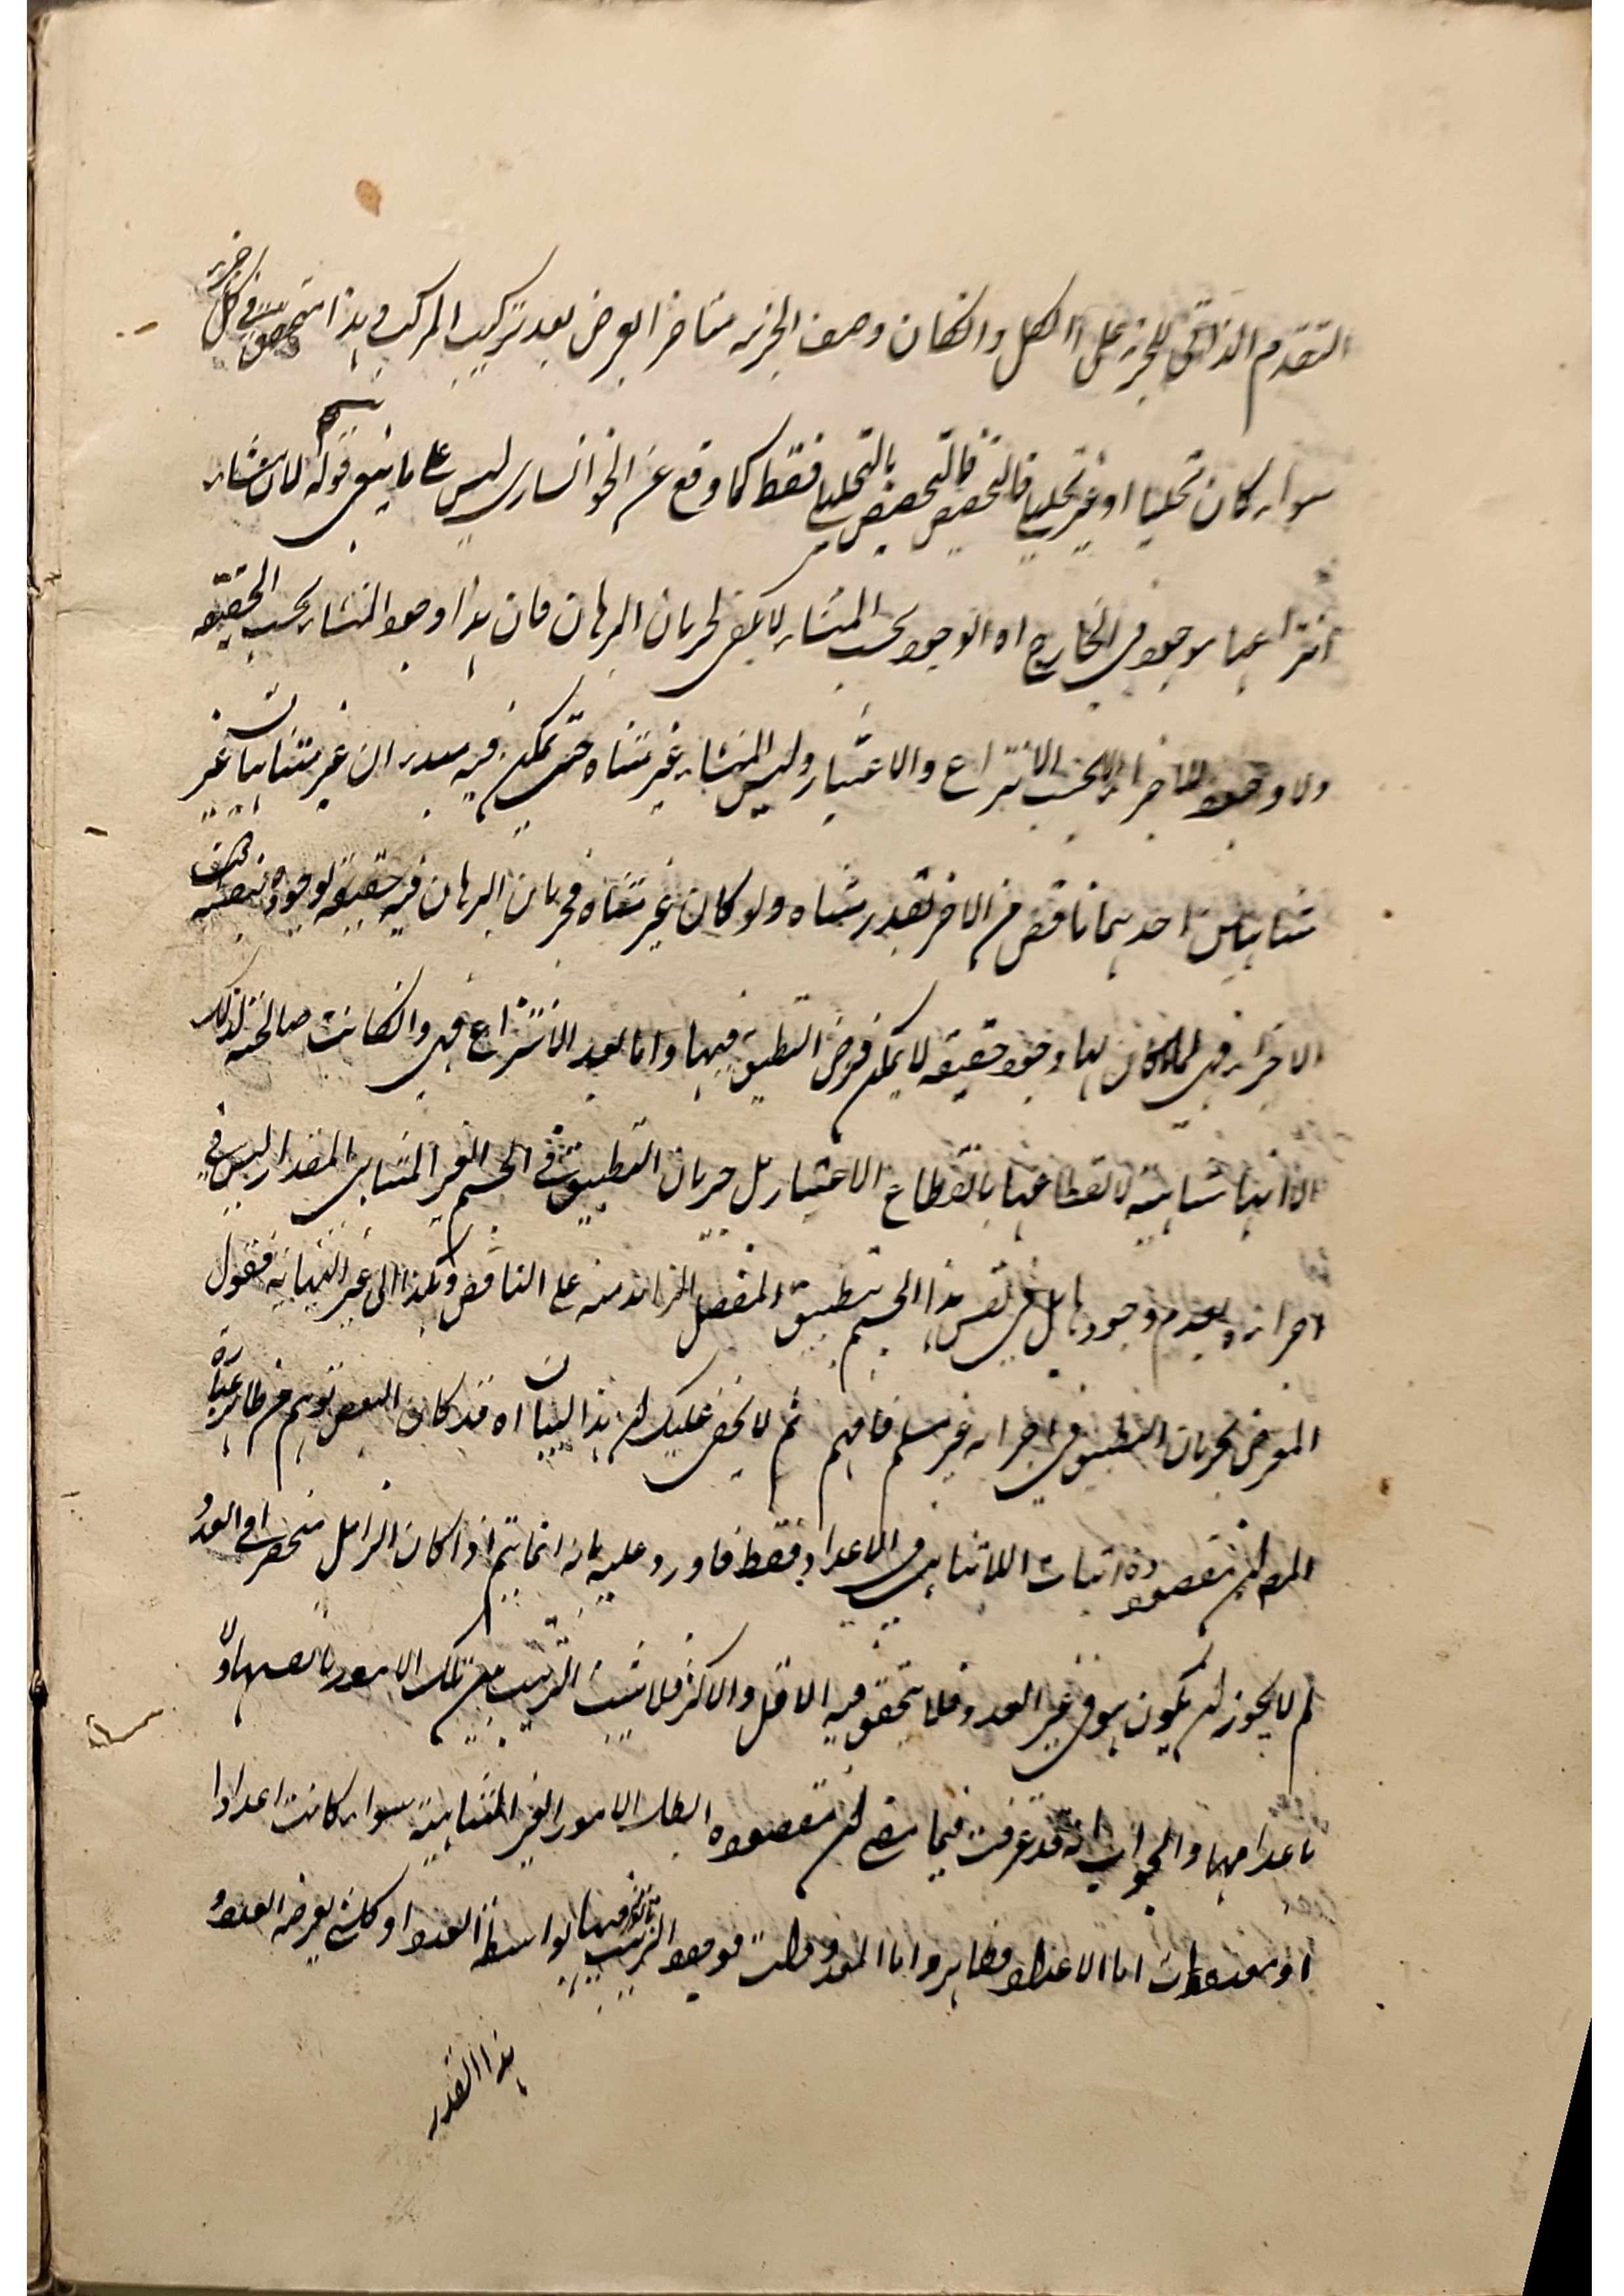 التقدم الذاتي للجزء على الكل وانكان وصف الجزئية متاخر العروض بعد تركيب المركب وهذا متحقق في كل جزء
سواء كان تحليليا او غير تحليلي فالتخصيص بالتحليلي فقط كما وقع عن الخوانساري ليس على ما ينبغي قوله لان منشاء
انتزاعها موجود في الخارج اه الوجود بحسب المنشاء لا يكفي لجريان البرهان فان هذا وجود المنشاء بحسب الحقيقة
ولا وجود للاجزاء الا بحسب الانتزاع والاعتبار وليس المنشاء غير متناه حتى يمكن فيه غير متناهيان غير
متناهيين احدهما ناقص من الاخر بقدر متناه ولو كان غير متناه فجريان البرهان فيه حقيقة لوجوده بنفسه
الاجزاء فهي لها وجود حقيقة لا يمكن فرض التطبيق فيها واما بعد الانتزاع فهي وانكانت صالحة لذلك
الا انها متناهية لانقطاعها بانقطاع الاعتبار بل جريان التطبيق في الجسم الغير المتناهي المقدار ليس في
اجزائه لعدم وجودها بل في نفس هذا الجسم بتطبيق المفصل الزائد منه على الناقص وهكذا الى غير النهاية فقول
المعرض بجريان التطبيق في اجزائه غير مسلم فافهم ثم لا يخفى عليك ان هذا البيان اه قد كان البعض توهم من ظاهر عبارة
المصـ ان مقصوده اثبات اللاتناهي في الاعداد فقط فاورد عليه بانه انما يتم اذا كان الزائل منحصرا في العدد
لم لا يجوز ان يكون هو في غير العدد فلا يتحقق فيه الاقل والاكثر فلا يثبت الترتيب بين تلك الامور بانفسها ولا
باعدامها والجواب انه قد عرفت فيما مضى ان مقصوده ابطال الامور الغير المتناهية سواء كانت اعدادا
او معدودات اما الاعداد فظاهر واما المعدودات فوجود الترتيب فيها بواسطة العدد او كل شيء يعرضه العدد
هذا القدر